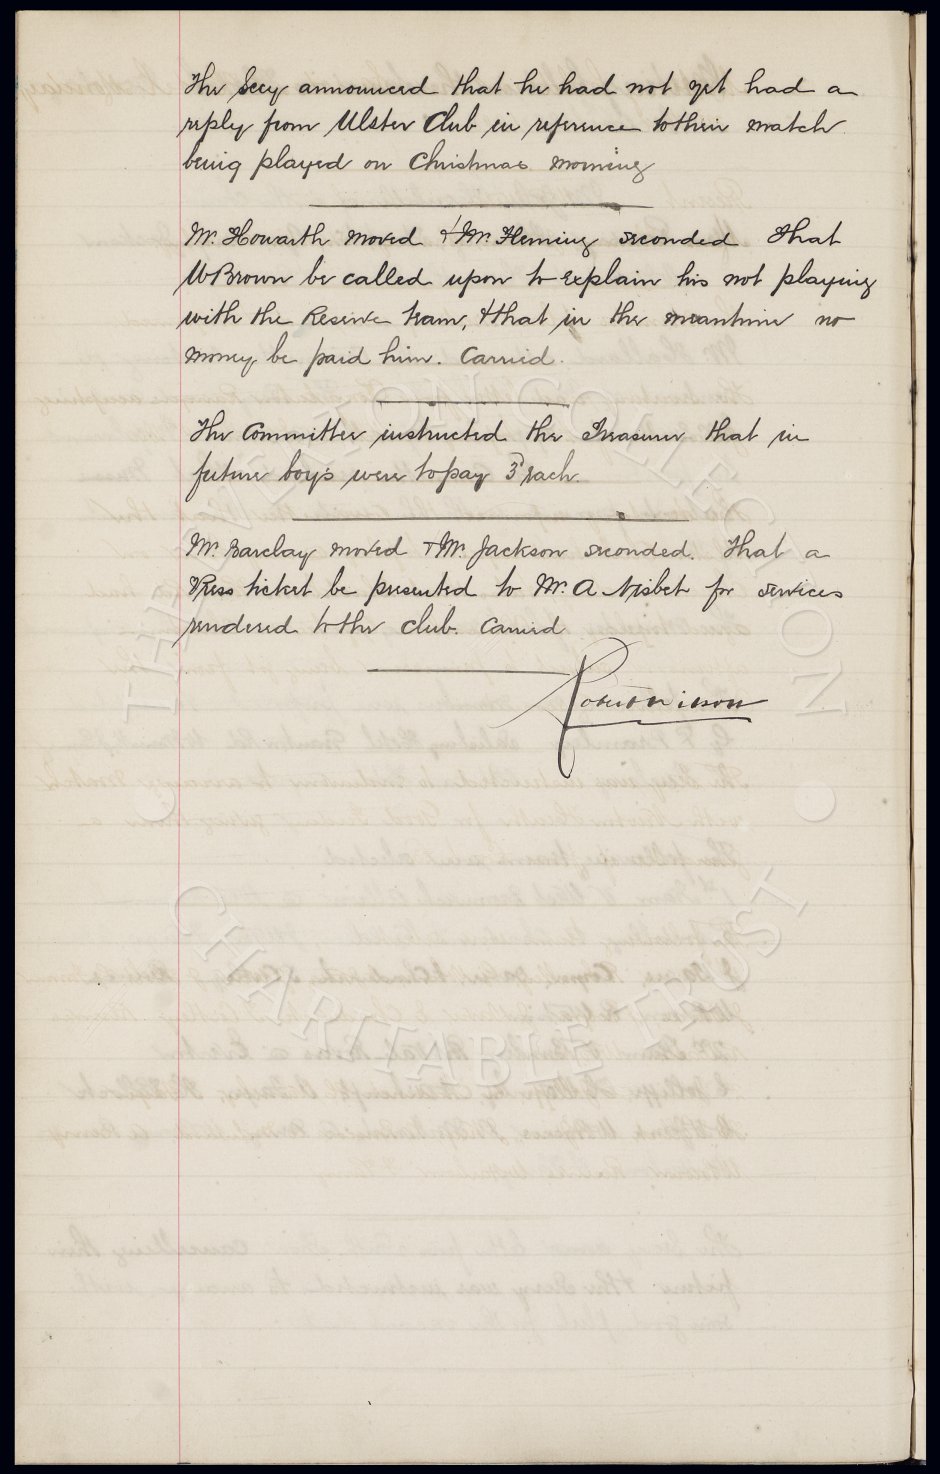 The Secy announced that he had not yet had a
reply from Ulster Club in reference to their match
being played on Christmas morning
Mr. Howarth moved & Mr. Fleming seconded that
W Brown be called upon to explain his not playing
with the Reserve team, & that in the meantime no
money be paid him. Carried.
The Committee instructed the Treasurer that in
future boys were to pay 3d each.
Mr. Barclay moved & Mr. Jackson seconded. That a
Press ticket be presented to Mr. A Nisbet for services
rendered to the club. Carried
Robert Wilson
THE EVERTON COLLECTION
CHARITABLE TRUST